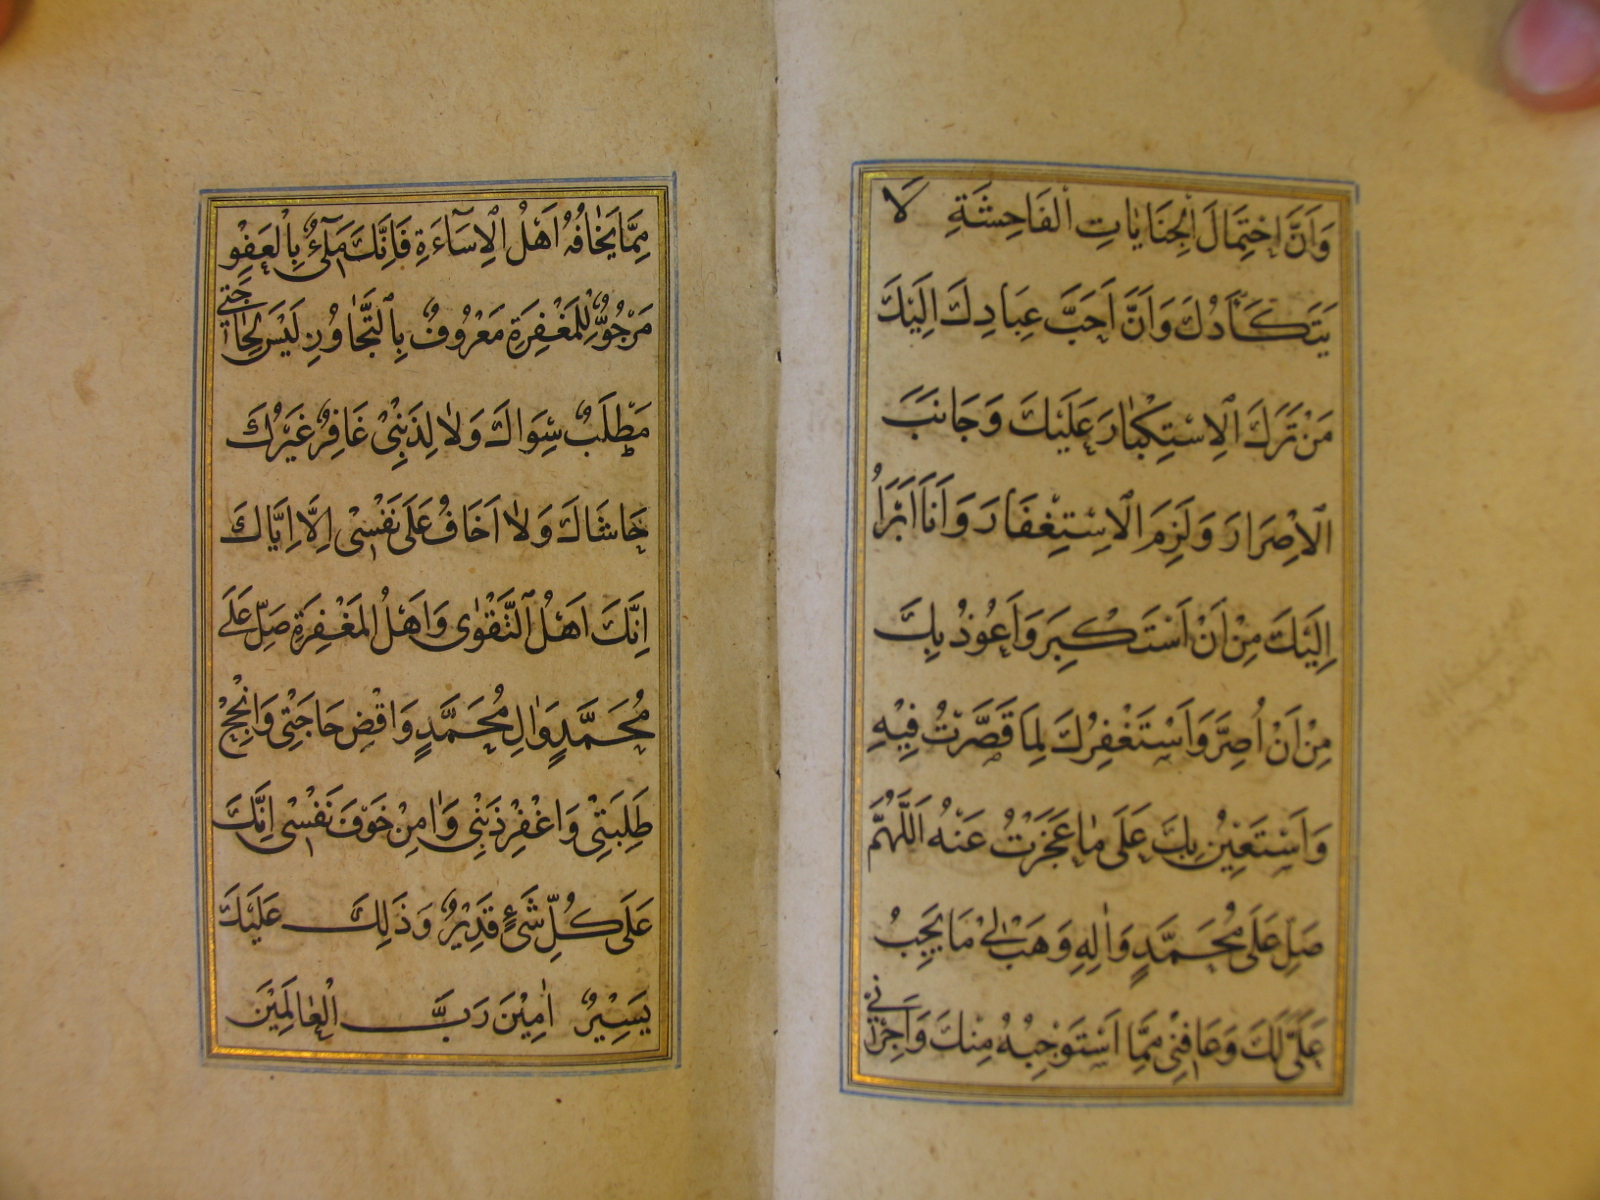 وَاَنَّ اِحْتِمَالَ الْجِنَايَاتِ الْفَاحِشَةِ لَا
يَتَكَأَّدُكَ وَاَنَّ اَحَبَّ عِبَادِكَ اِلَيْكَ
مَنْ تَرَكَ الْاِسْتِكْبَارَ عَلَيْكَ وَجَانَبَ
الْاِصْرَارَ وَلَزِمَ الْاِسْتِغْفَارَ وَاَنَا اَبْرَأُ
اِلَيْكَ مِنْ اَنْ اَسْتَكْبِرَ وَاَعُوذُ بِكَ
مِنْ اَنْ اُصِرَّ وَاَسْتَغْفِرُكَ لِمَا قَصَّرْتُ فِيْهِ
وَاَسْتَعِيْنُ بِكَ عَلَى مَا عَجَزْتُ عَنْهُ اَللّٰهُمَّ
صَلِّ عَلَى مُحَمَّدٍ وَاٰلِهِ وَهَبْ لِيْ مَا يَجِبُ
عَلَيَّ لَكَ وَعَافِنِيْ مِمَّا اَسْتَوْجِبُهُ مِنْكَ وَاَجِرْنِيْ
مِمَّا يَخَافُهُ اَهْلُ الْاِسَآءَةِ فَاِنَّكَ مَلِیْٓءٌ بِالْعَفْوِ
مَرْجُوٌّ لِلْمَغْفِرَةِ مَعْرُوفٌ بِالتَّجَاوُزِ لَيْسَ لِحَاجَتِي
مَطْلَبٌ سِوَاكَ وَلَا لِذَنْبِيْ غَافِرٌ غَيْرُكَ
حَاشَاكَ وَلَا اَخَافُ عَلَى نَفْسِيْ اِلَّا اِيَّاكَ
اِنَّكَ اَهْلُ التَّقْوٰى وَاَهْلُ الْمَغْفِرَةِ صَلِّ عَلَى
مُحَمَّدٍ وَاٰلِ مُحَمَّدٍ وَاقْضِ حَاجَتِيْ وَاَنْجِحْ
طَلِبَتِيْ وَاغْفِرْ ذَنْبِيْ وَاٰمِنْ خَوْفَ نَفْسِيْ اِنَّكَ
عَلَى كُلِّ شَيْءٍ قَدِيْرٌ وَذَلِكَ عَلَيْكَ
يَسِيْرٌ اٰمِيْنَ رَبَّ الْعَالَمِيْنَ